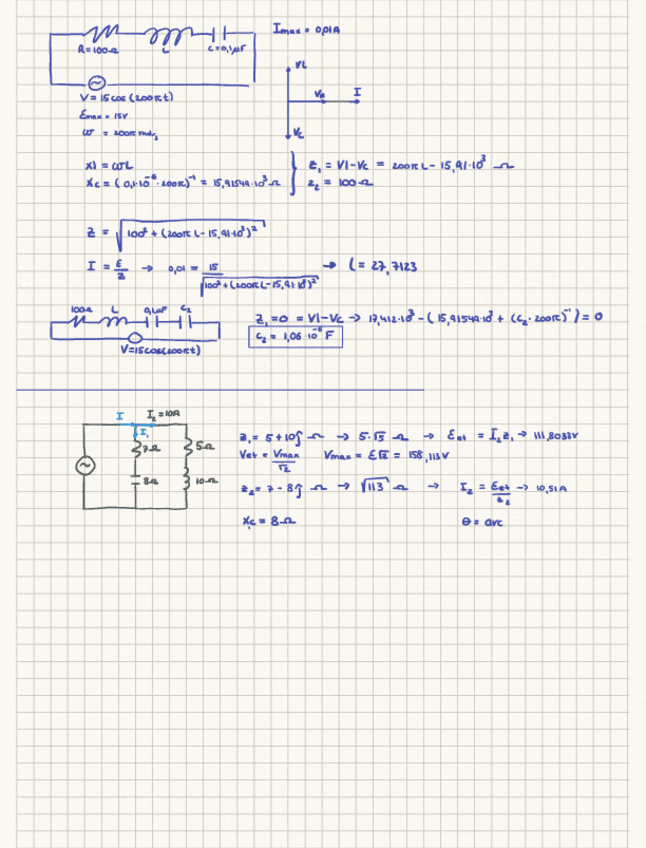 Imax = 0,01A
R=100Ω L C=0,1μF
VL
VR I
Vc
V = 15cos(200πt)
Emax = 15V
ω = 200π rad/s
Xl = ωL
Xc = (0,1·10⁻⁶·200π)⁻¹ = 15,91549·10³ Ω
z₁ = Vl-Vc = 200πL - 15,91·10³ Ω
z₂ = 100Ω
Z = √(100² + (200πL-15,91·10³)²)
I = ε/Z → 0,01 = 15/√(100²+(200πL-15,91·10³)²) → L = 27,7123
100Ω L 0,1μF C₂
V=15cos(200πt)
Z₁=0 = Vl-Vc → 17,412·10³ - (15,91549·10³ + (C₂·200π)⁻¹) = 0
C₂ = 1,06·10⁻⁶ F
I I₂=10A
I₁
7Ω 5Ω
8Ω 10Ω
z₁= 5+10j Ω → 5·√5 Ω → Eef = I₂z₁ → 111,8033V
Vef = Vmax/√2 Vmax = E√2 = 158,113V
z₂= 7-8j Ω → √113 Ω → I₂ = Eef/z₂ → 10,51A
Xc = 8Ω
θ = arc